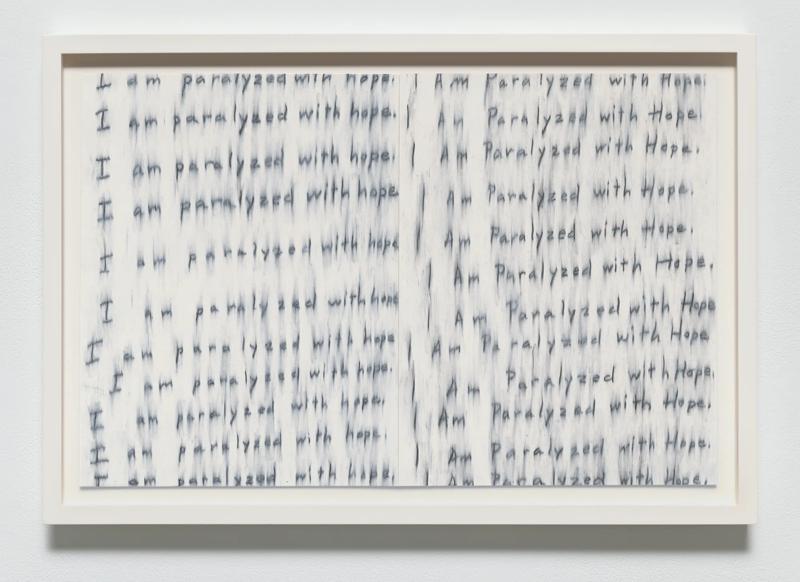 I am paralyzed with hope.
I am paralyzed with hope.
I am paralyzed with hope.
I am paralyzed with hope
I am paralyzed with hope
I am paralyzed with hope
I am paralyzed with hope
I am paralyzed with hope.
I am paralyzed with hope.
I am paralyzed with hope.
I am paralyzed with hope.
I Am Paralyzed with Hope.
I Am Paralyzed with Hope.
I Am Paralyzed with Hope.
I Am Paralyzed with Hope.
I Am Paralyzed with Hope.
I Am Paralyzed with Hope.
I Am Paralyzed with Hope
I Am Paralyzed with Hope
I Am Paralyzed with Hope.
I Am Paralyzed with Hope.
I Am Paralyzed with Hope.
I Am Paralyzed with Hope.